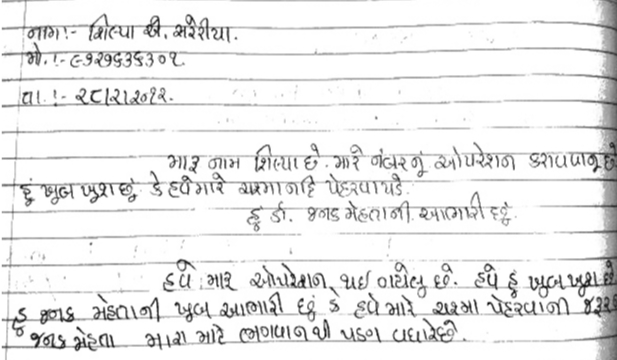 નામ:- શિલ્પા એ. સરેરીયા.
મો.:- ૯૧૨૧૬૩૬૩૦૧
તા.:- ૨૮/૨/૨૦૧૨.
મારૂ નામ શિલ્પા છે. મારે નંબરનું ઓપરેશન કરાવવાનું છે
હું ખુબ ખુશ છું. કે હવે મારે ચશ્મા નહિ પેહરવા પડે.
હું ડૉ. જનક મેહતાની આભારી છું.
હવે મારૂ ઓપરેશન થઇ ગયેલુ છે. હવે હું ખુબ ખુશ છું
હું જનક મેહતાની ખુબ આભારી છું કે હવે મારે ચશ્મા પેહરવાની
જનક મેહતા મારા માટે ભગવાન થી પણ વધારે છે.